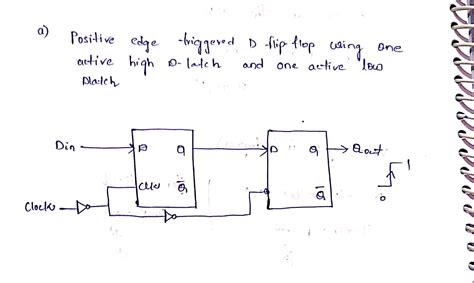 a) Positive edge -triggered D flip flop using one
active high D-latch and one active low
Dlatch
Din D Q D Q Qout 1
Clk Q̅ Q̅ 0
Clock